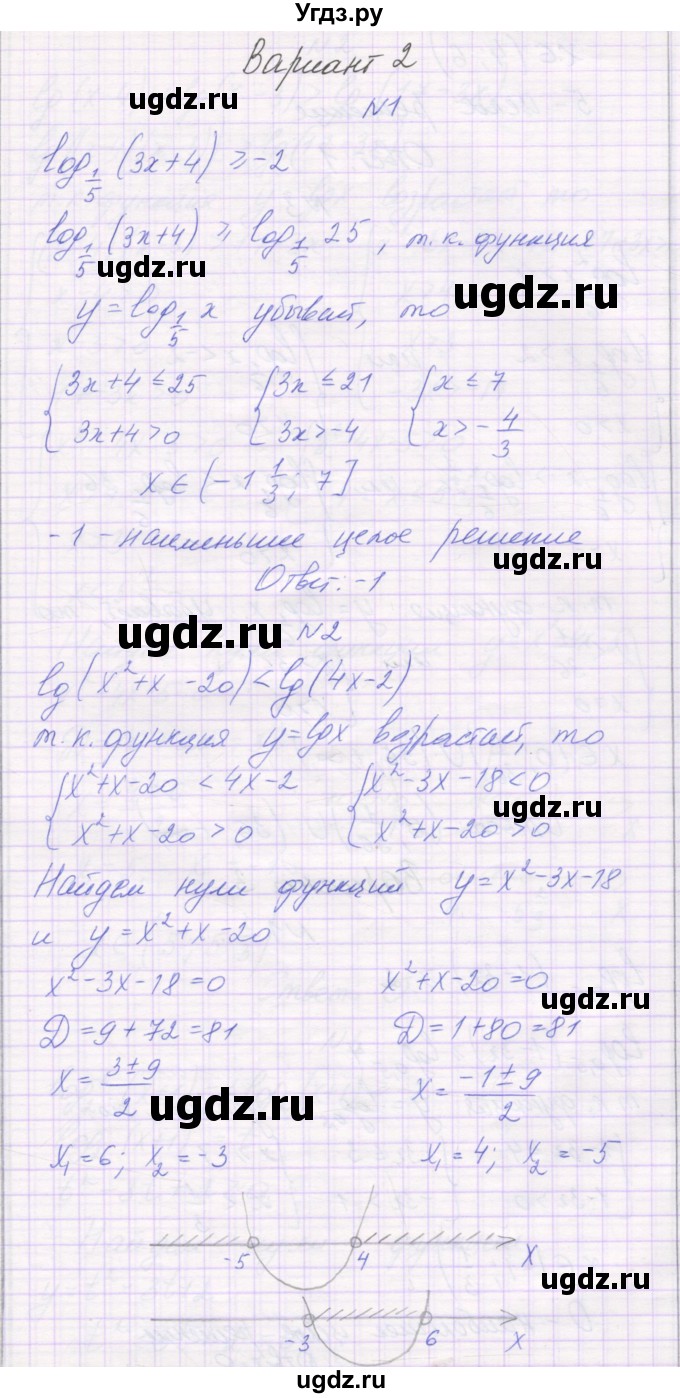 Угдз.ру
Вариант 2
ugdz.ru
N1
log_{1/5} (3x+4) ≥ -2
log_{1/5} (3x+4) ≥ log_{1/5} 25, т.к. функция
ugdz.ru
ugdz.ru
y = log_{1/5} x убывает, то
{ 3x+4 ≤ 25 { 3x ≤ 21 { x ≤ 7
{ 3x+4 > 0 { 3x > -4 { x > -4/3
x ∈ (-1 1/3; 7]
-1 - наименьшее целое решение
ugdz.ru
Ответ: -1
ugdz.ru
N2
lg(x²+x-20) < lg(4x-2)
т.к. функция y = lgx возрастает, то
{ x²+x-20 < 4x-2 { x²-3x-18 < 0
ugdz.ru
{ x²+x-20 > 0 { x²+x-20 > 0
Найдем нули функций y = x²-3x-18
и y = x²+x-20
x²-3x-18 = 0 x²+x-20 = 0
ugdz.ru
D = 9+72 = 81 D = 1+80 = 81
x = (3±9)/2 x = (-1±9)/2
ugdz.ru
x₁ = 6; x₂ = -3 x₁ = 4; x₂ = -5
-5 4 x
ugdz.ru
-3 6 x
ugdz.ru